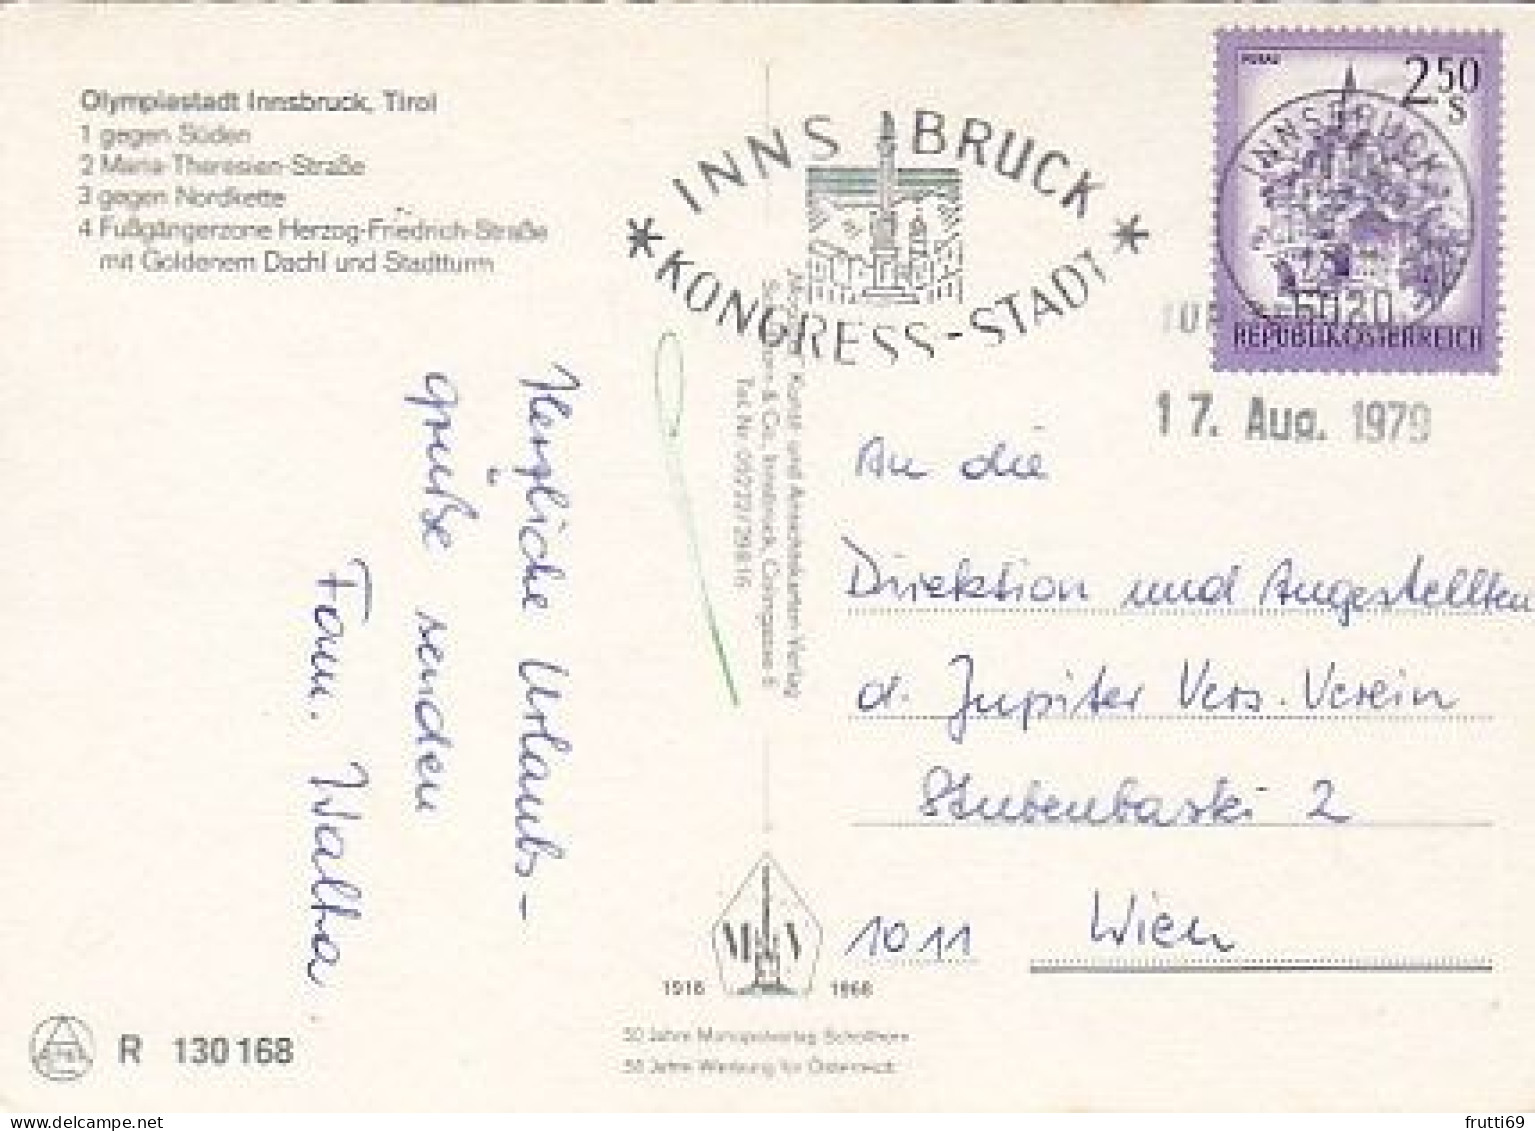 Olympiastadt Innsbruck, Tirol
1 gegen Süden
2 Maria-Theresien-Straße
3 gegen Nordkette
4 Fußgängerzone Herzog-Friedrich-Straße
mit Goldenem Dachl und Stadtturm
* INNSBRUCK *
KONGRESS-STADT
MURAU
2.50
S
INNSBRUCK
6020
REPUBLIK ÖSTERREICH
17. Aug. 1979
Herzliche Urlaubs-
grüße senden
Fam. Walter
Kunst- und Ansichtskarten-Verlag
& Co., Innsbruck,
Tel. Nr. 05222/
An die
Direktion und Angestellten
d. Jupiter Vers. Verein
Stubenbastei 2
1011 Wien
M V
1918 1968
50 Jahre Monopolverlag Schöllhorn
50 Jahre Werbung für Österreich
R 130168
frutti69